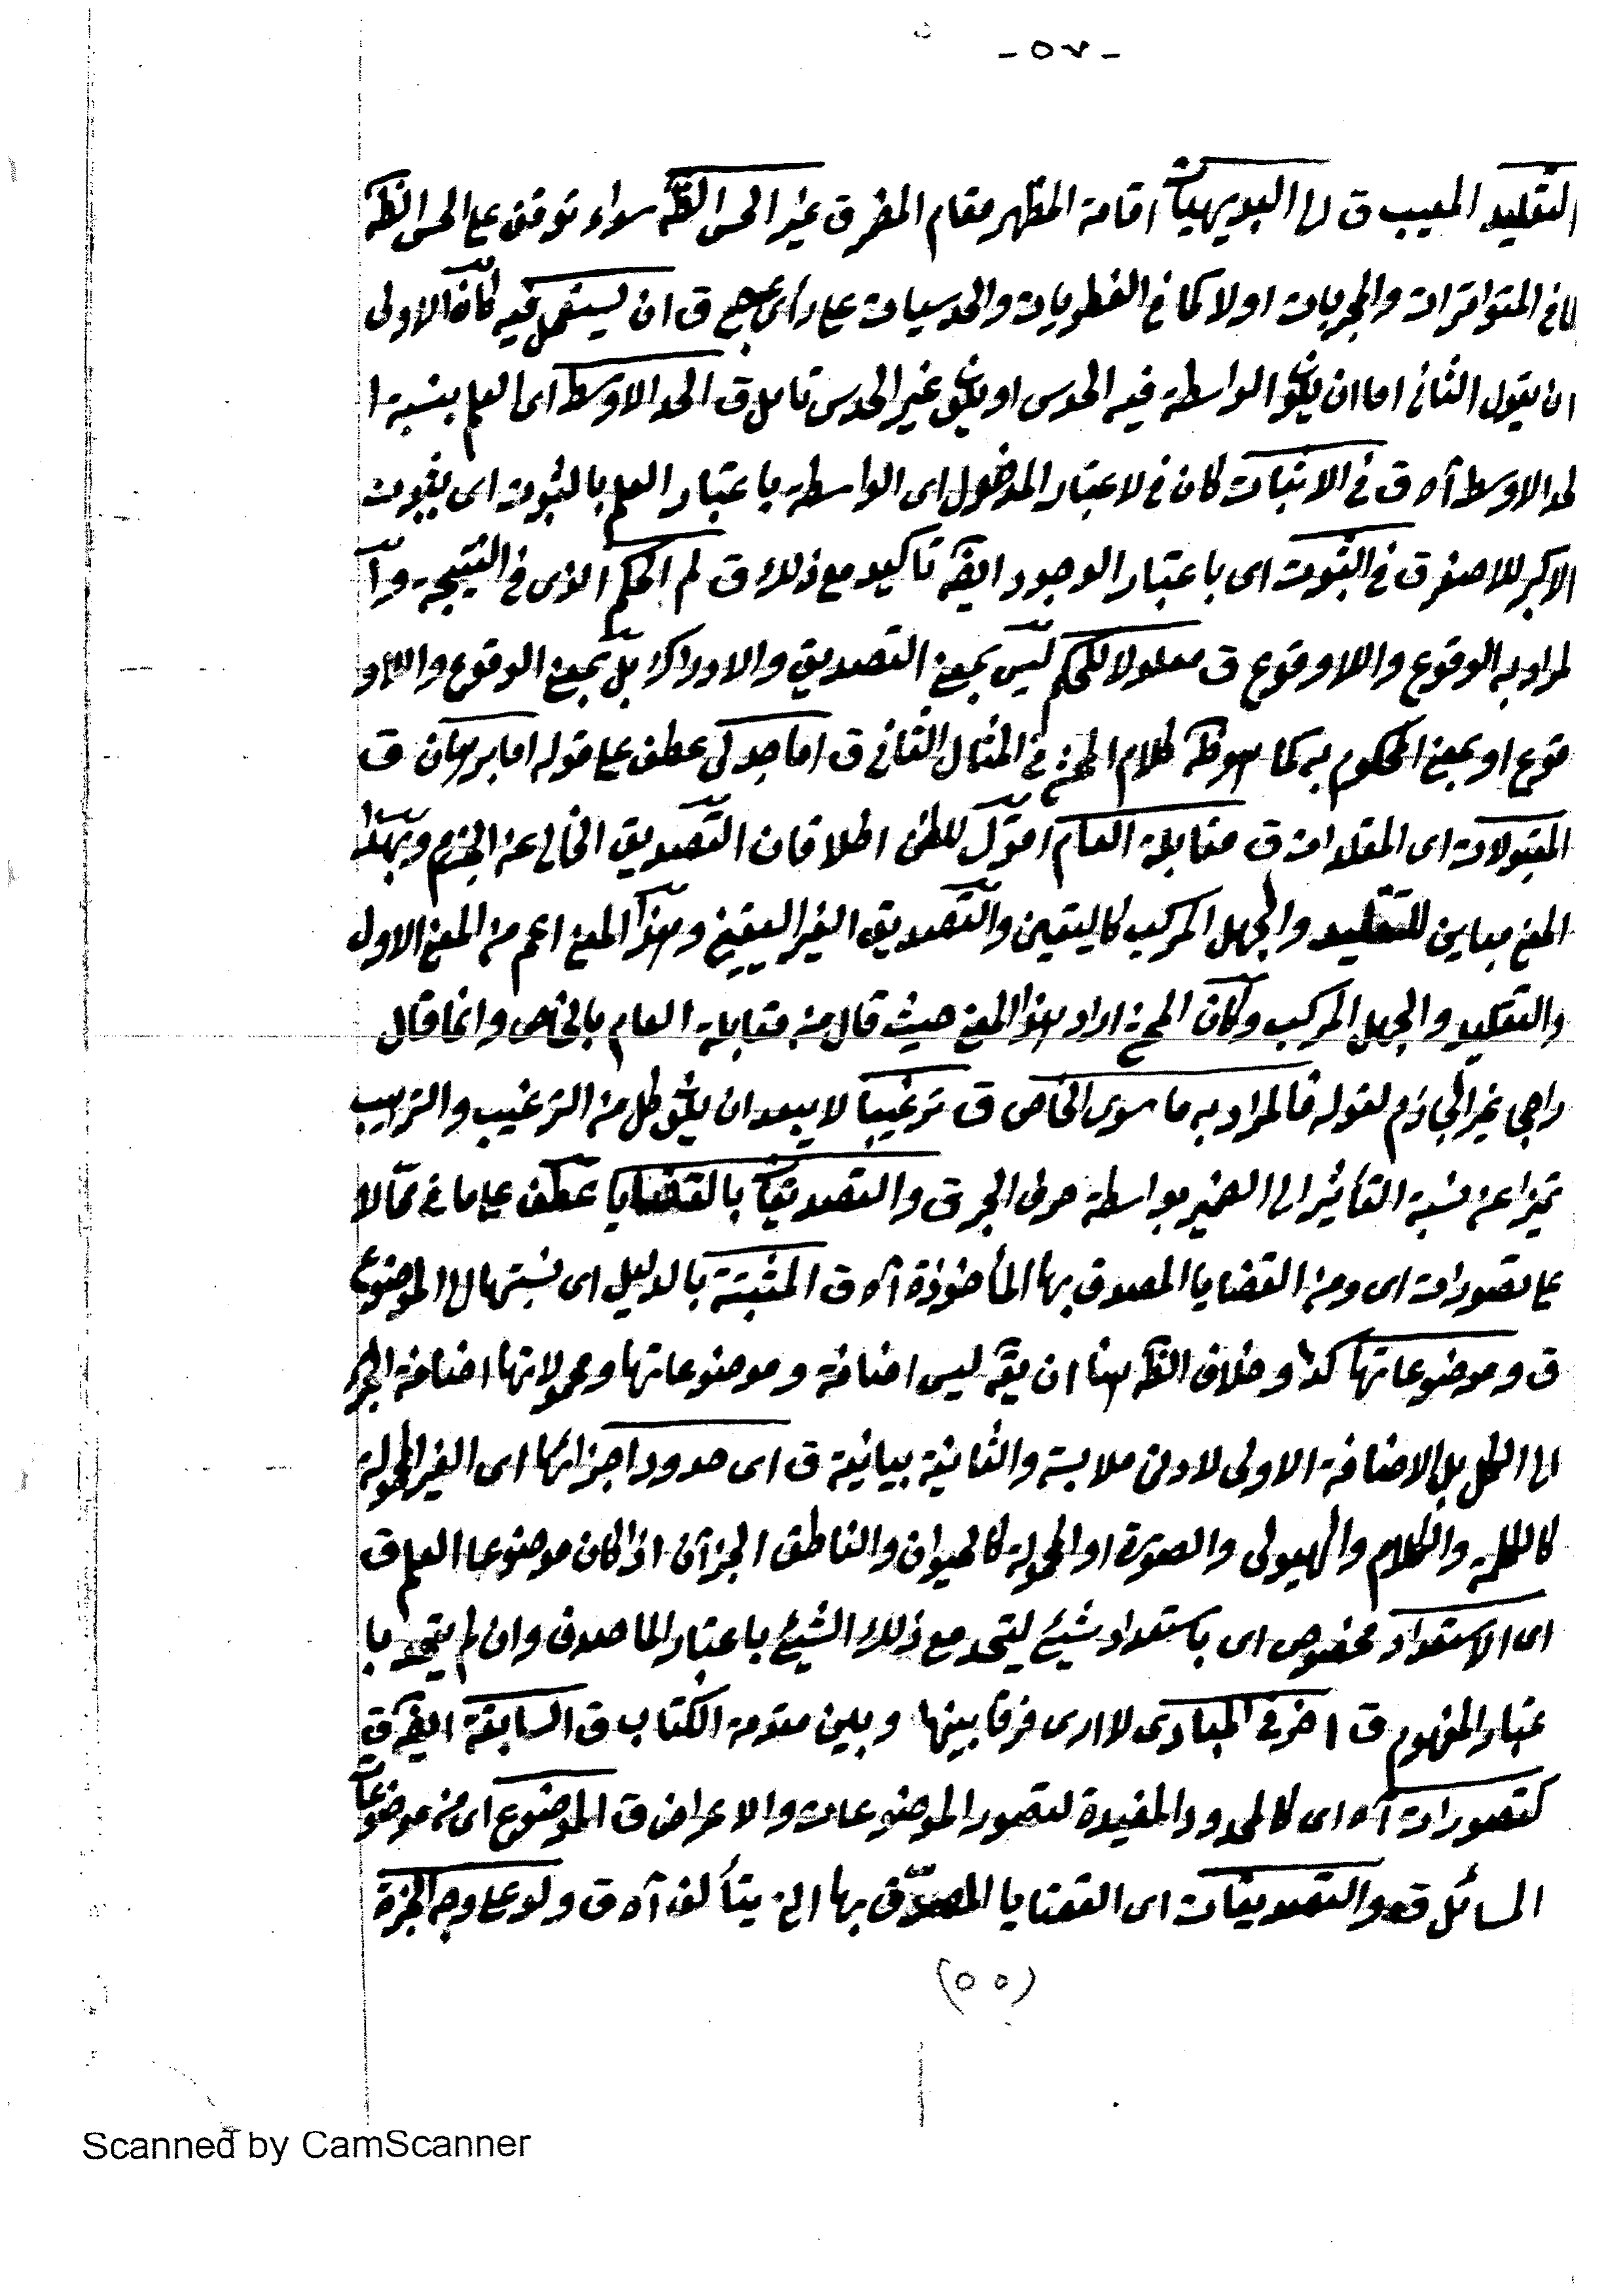 -٥٧-
التقليد المعيب ق الى البديهيات اقامة المظهر مقام المضمر ق غير الحس الظ سواء توقف على الحس الظ
كما في المتواترات والمجربات اولا كما في الفطريات والحدسيات على رأى ق ان يستعمل فيه كأنه الاولى
ان يقول الثانى اما ان يكون الواسطة فيه الحدس او يكون غير الحدس تامل ق الحد الاوسط اى العلم بنسبة ا
لحد الاوسط آه ق في الاثبات كان في لاعتبار المدخول اى الواسطة باعتبار العلم بالثبوت اى بثبوت
الاكبر للاصغر ق في الثبوت اى باعتبار الوجود ايضً تاكيد مع ذلك ق لم الحكم الذى في النتيجة و ا
لمراد به الوقوع واللاوقوع ق معلولا للحكم ليس بمعنى التصديق والادراك بل بمعنى الوقوع واللاو
قوع او بمعنى المحكوم به كما هو ظ كلام المح في المثال الثانى ق اما جدلى عطف على قوله اما برهان ق
المقبولات اى المقلدات ق مقابلة العام اقول للظن اطلاقان التصديق الخالى عن الجزم وبهذا
المعنى مباين للتقليد والجهل المركب كاليقين والتصديق الغير اليقينى وهذا المعنى اعم من المعنى الاول
والتقليد والجهل المركب وكان المح اراد هذا المعنى حيث قال من مقابلة العام بالخاص وانما قال
راجى غير الجازم لقوله فالمراد به ما سوى الخاص ق ترغيبا لا يبعد ان يكون كل من الترغيب والترهيب
تميزا عن نسبة التأثير الى الضمير بواسطة حرف الجر ق والتصديقات بالقضايا عطف على ما في مما لا
على تصورات اى ومن القضايا المصدق بها المأخوذة آه ق المثبتة بالدليل اى نسبتها الى الموضوع
ق وموضوعاتها كذا وخلاف الظ هنا ان يقً ليس اضافة وموضوعاتها ومحمولاتها اضافة الجزء
الى الكل بل الاضافة الاولى لادنى ملابسة والثانية بيانية ق اى حدود اجزائها اى الغير المحمولة
كالكلمة والكلام والهيولى والصورة او المحمولة كالحيوان والناطق الجزآن اذا كان موضوعا العلم ق
اى الاستعداد مخصوص اى باستعداد شيئ ليتحد مع ذلك الشيئ باعتبار الماصدق وان لم يتحد با
عتبار المفهوم ق اخر في المبادى لا ارى فرقا بينها وبين مقدمة الكتاب ق السابقة ايضً ق
كتصورات آه اى كالحدود المفيدة لتصور الموضوعات والاعراض ق الموضوع اى من موضوعا
المسائل ق والتصديقات اى القضايا المصدّق بها الخ يتألف آه ق ولو على وجه الجزء
(٥٥)
Scanned by CamScanner